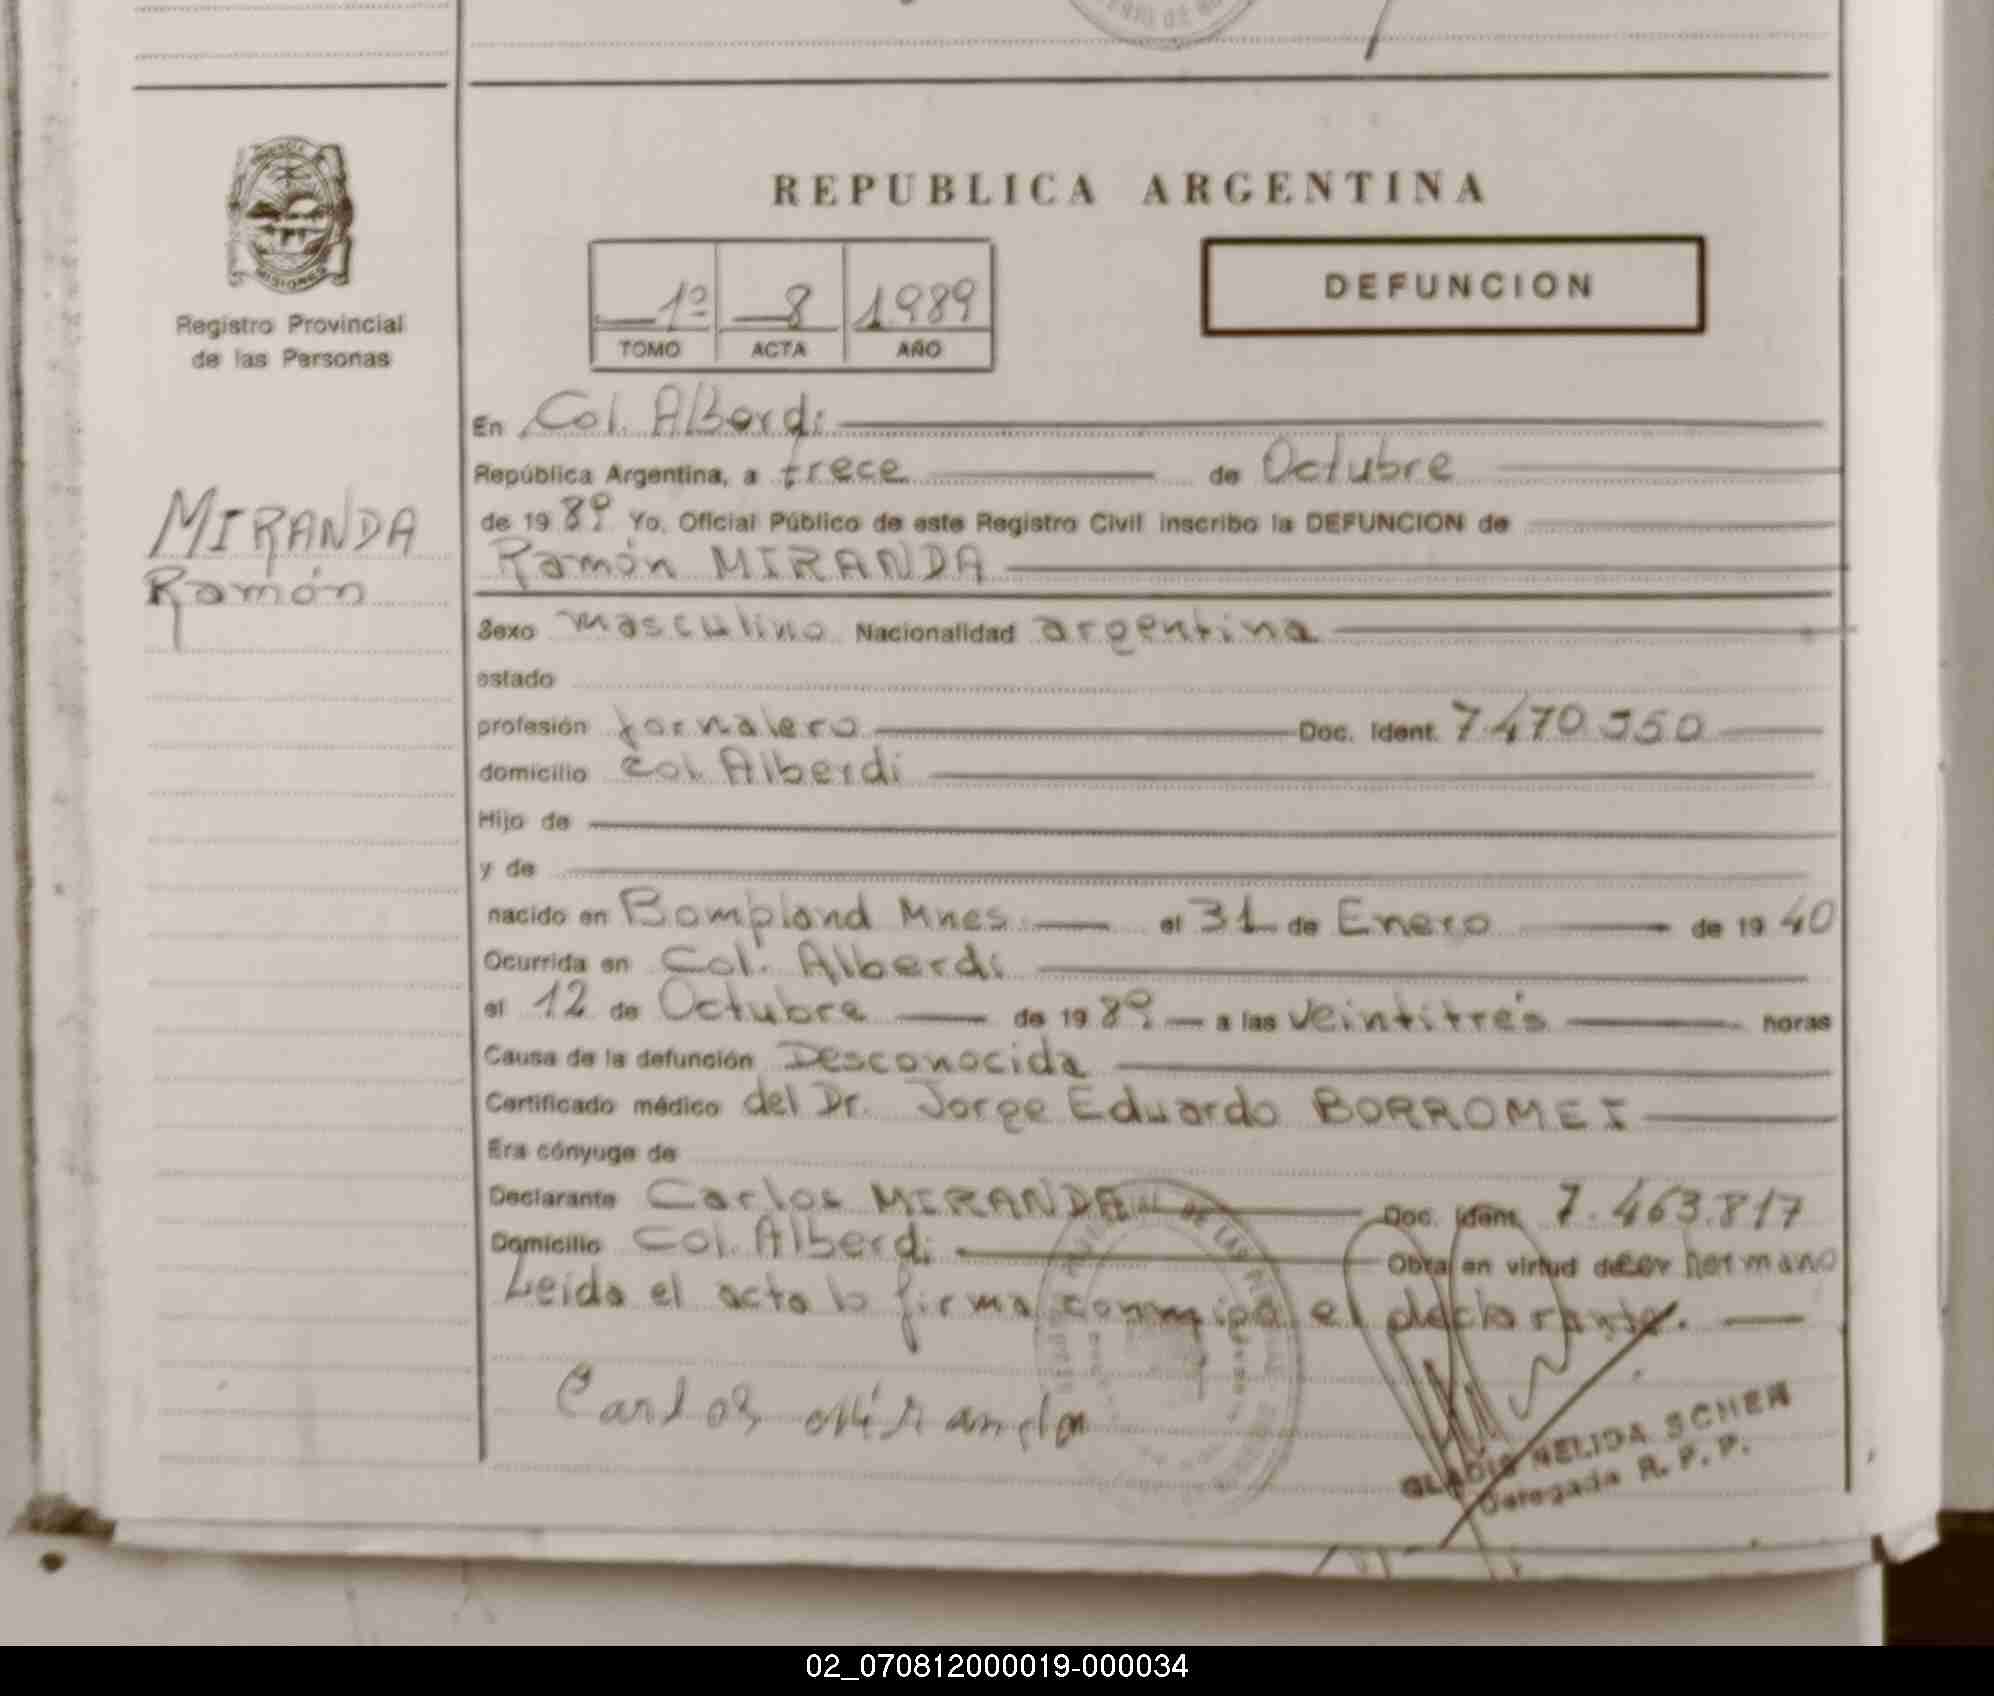 REPUBLICA ARGENTINA
1º 8 1989
TOMO ACTA AÑO
DEFUNCION
Registro Provincial
de las Personas
MIRANDA
Ramón
En Col. Alberdi
República Argentina, a trece de Octubre
de 1989 Yo, Oficial Público de este Registro Civil inscribo la DEFUNCION de
Ramón MIRANDA
Sexo masculino Nacionalidad argentina
estado
profesión jornalero Doc. Ident. 7.470.550
domicilio Col. Alberdi
Hijo de
y de
nacido en Bompland Mnes. el 31 de Enero de 1940
Ocurrida en Col. Alberdi
el 12 de Octubre de 1989 a las veintitrés horas
Causa de la defunción Desconocida
Certificado médico del Dr. Jorge Eduardo BORROMEI
Era cónyuge de
Declarante Carlos MIRANDA Doc. Ident. 7.463.817
Domicilio Col. Alberdi Obra en virtud de ser hermano
Leida el acta la firma conmigo el declarante.
Carlos Miranda
GLADIS NELIDA SCHEN
Delegada R. P. P.
02_070812000019-000034